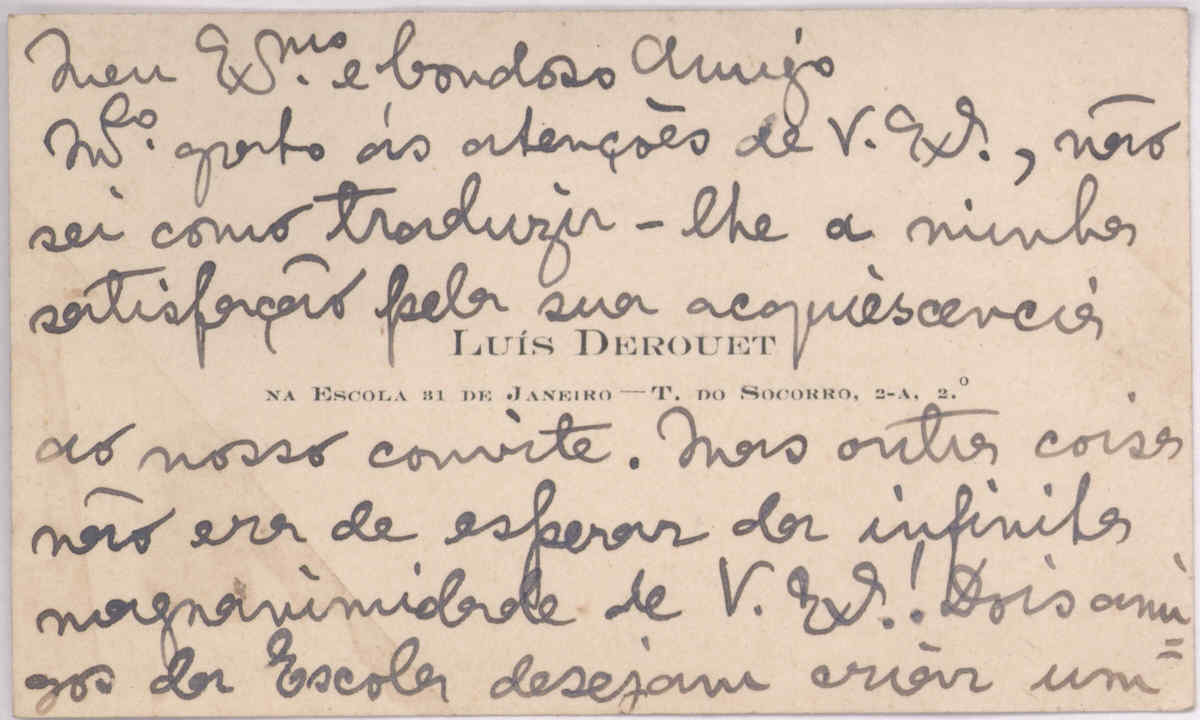 Meu Ex.mo e bondoso Amigo
M.to grato ás atenções de V. Ex.ª, não
sei como traduzir-lhe a minha
satisfação pela sua acquiescencia
LUÍS DEROUET
NA ESCOLA 31 DE JANEIRO — T. DO SOCORRO, 2-A, 2.º
ao nosso convite. Mas outra coisa
não era de esperar da infinita
magnanimidade de V. Ex.ª! Dois ami=
gos da Escola desejam criar um